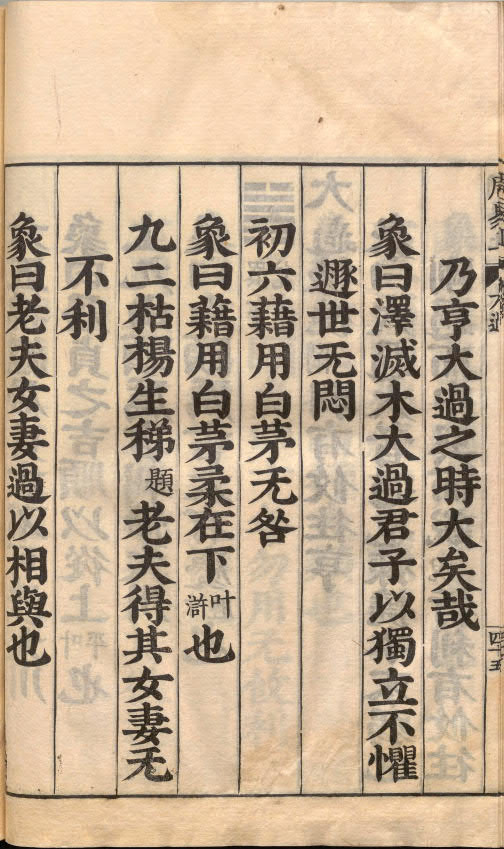 乃亨大過之時大矣哉
象曰澤滅木大過君子以獨立不懼
遯世无悶
初六藉用白茅无咎
象曰藉用白茅柔在下叶滸也
九二枯楊生稊題老夫得其女妻无
不利
象曰老夫女妻過以相與也
四十五